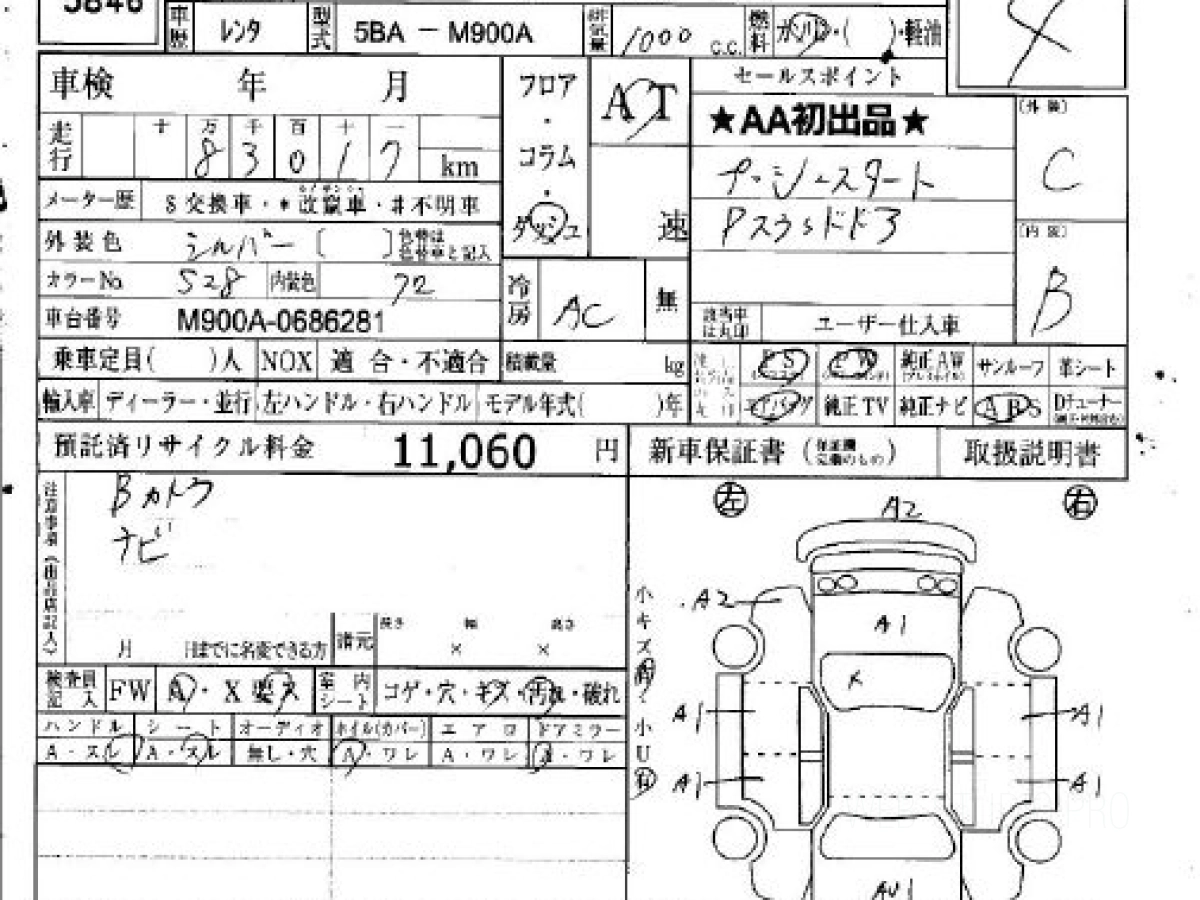 5846
車歴 レンタ 型式 5BA － M900A 排気量 1000 C.C. 燃料 ガソリン・( )・軽油
車検 年 月 フロア・コラム・ダッシュ AT 速 セールスポイント
★AA初出品★
(外装) C
走行 十 万 千 百 十 一
8 3 0 1 7 km
プッシュスタート
メーター歴 $交換車・*改竄車・#不明車
Pスライドドア
外装色 シルバー [ ] 色替は色替車と記入
(内装) B
カラーNo. S28 内装色 72 冷房 AC 無
車台番号 M900A-0686281 該当車は丸印 ユーザー仕入車
乗車定員( )人 NOX 適合・不適合 積載量 kg PS PW 純正AW サンルーフ 革シート
輸入車 ディーラー・並行 左ハンドル・右ハンドル モデル年式( )年 エアバッグ 純正TV 純正ナビ ABS Dチューナー
預託済リサイクル料金 11,060 円 新車保証書 取扱説明書
注意事項(出品店記入)
Bカメラ
ナビ
月 日までに名変できる方 諸元 長さ × 幅 × 高さ
検査員記入 FW A・X 要ス 室内シート コゲ・穴・キズ・汚れ・破れ
ハンドル シート オーディオ ホイル(カバー) エアロ ドアミラー
A・スレ A・スレ 無し・穴 A・ワレ A・ワレ A・ワレ
左 右
A2
A2
A1
小キズ有・小U有
A1 A1
A1 A1
AU1